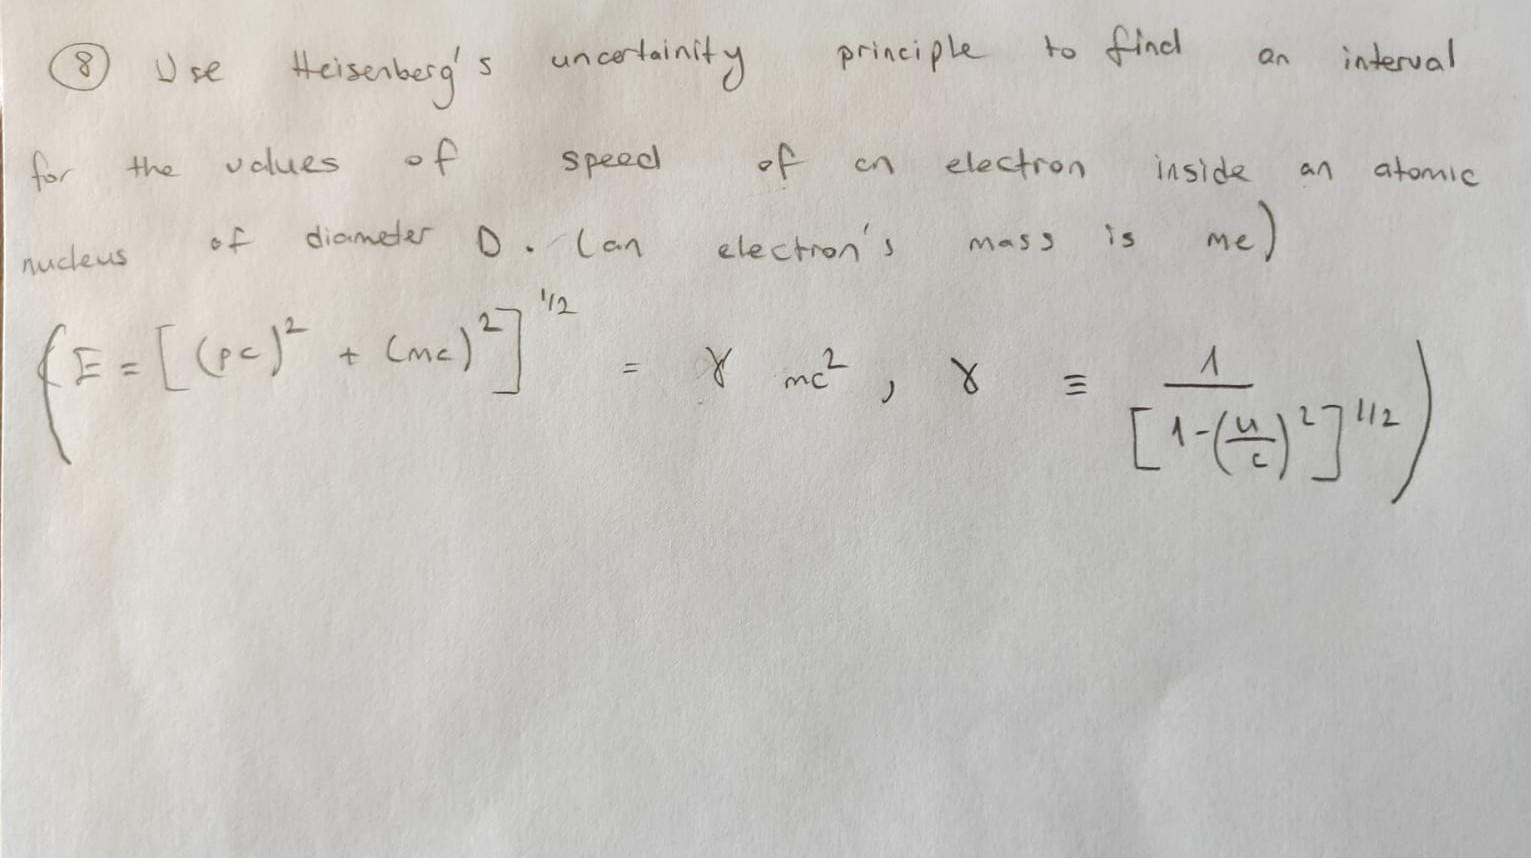 ⑧ Use Heisenberg's uncertainity principle to find an interval
for the values of speed of an electron inside an atomic
nucleus of diameter D. (an electron's mass is me)
(E = [(pc)² + (mc)²]^1/2 = γ mc², γ ≡ 1/[1-(u/c)²]^1/2)